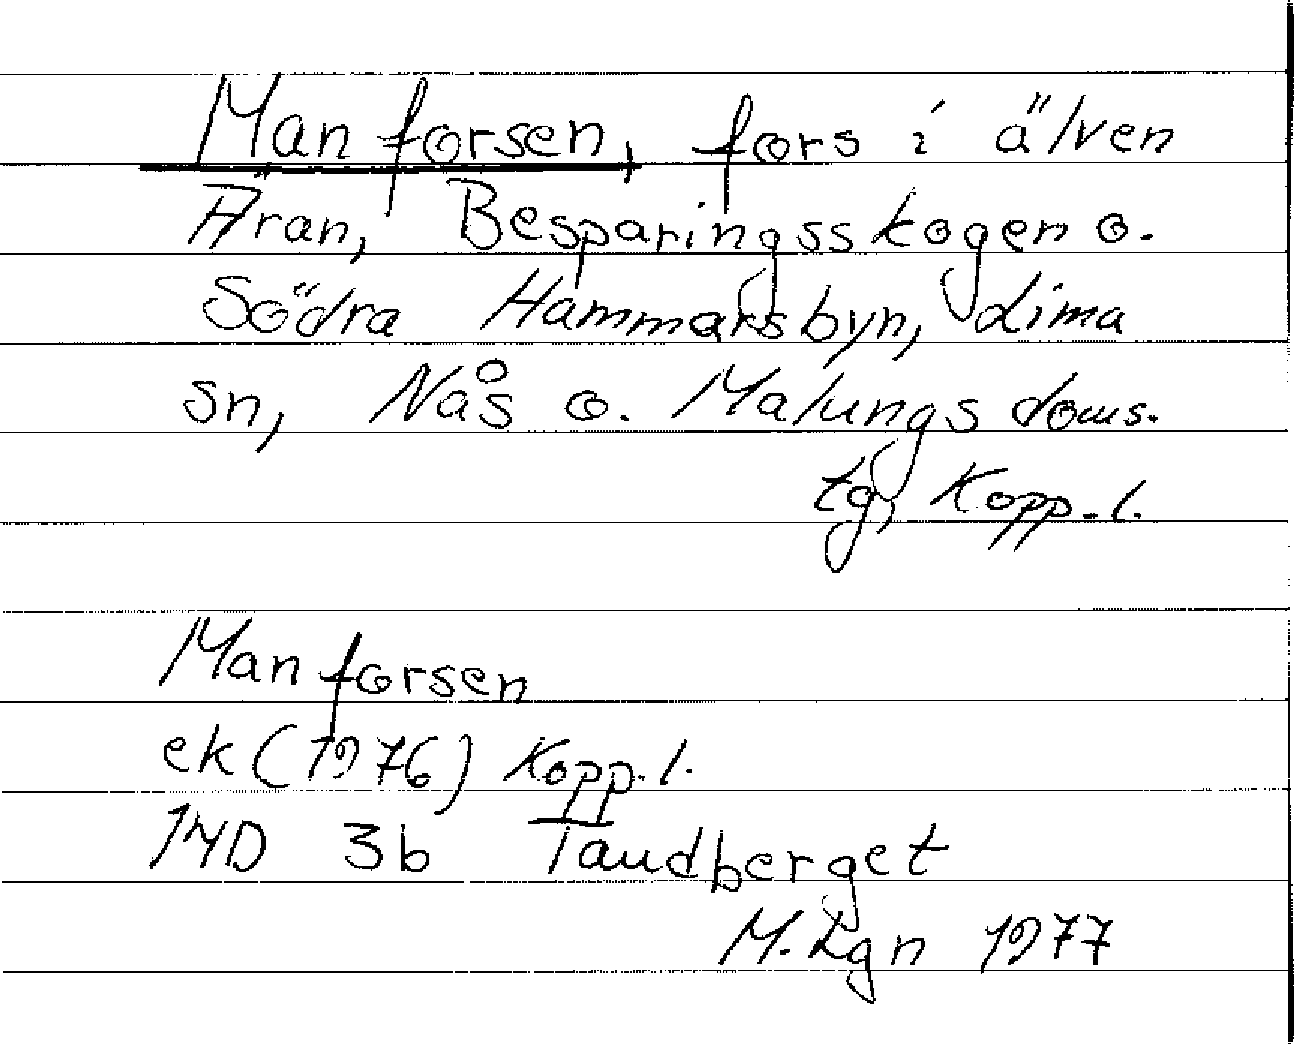 Manforsen, fors i älven
Äran, Besparingsskogen o.
Södra Hammarsbyn, Lima
sn, Nås o. Malungs doms.
tg, Kopp. l.
Manforsen
ek (1976) Kopp. l.
14D 3b Tandberget
M. Lgn 1977